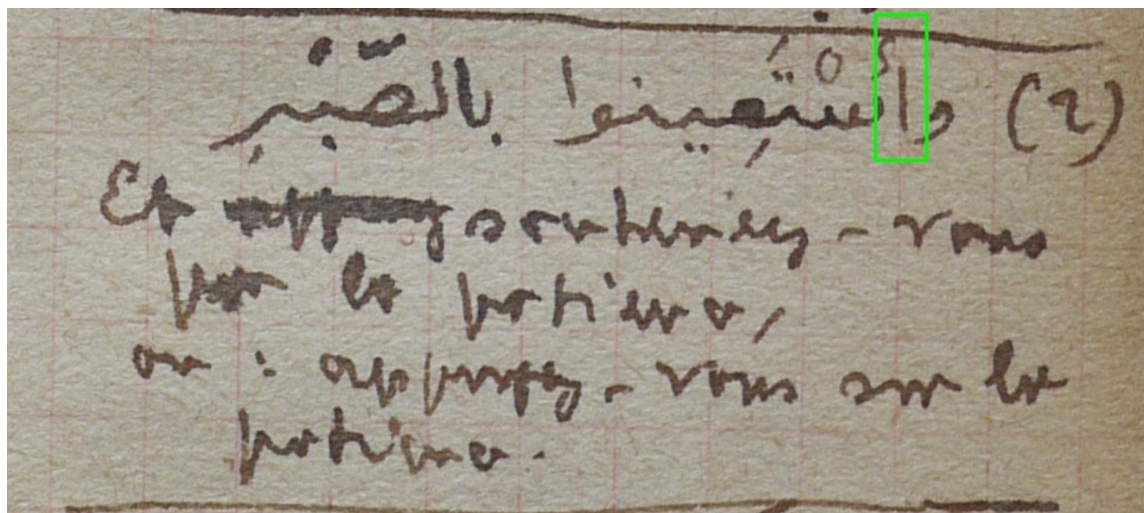 (2) وٱسْتَعِينُوا بالصَّبْرِ
Et soutenez-vous
par la patience,
ou : appuyez-vous sur la
patience.